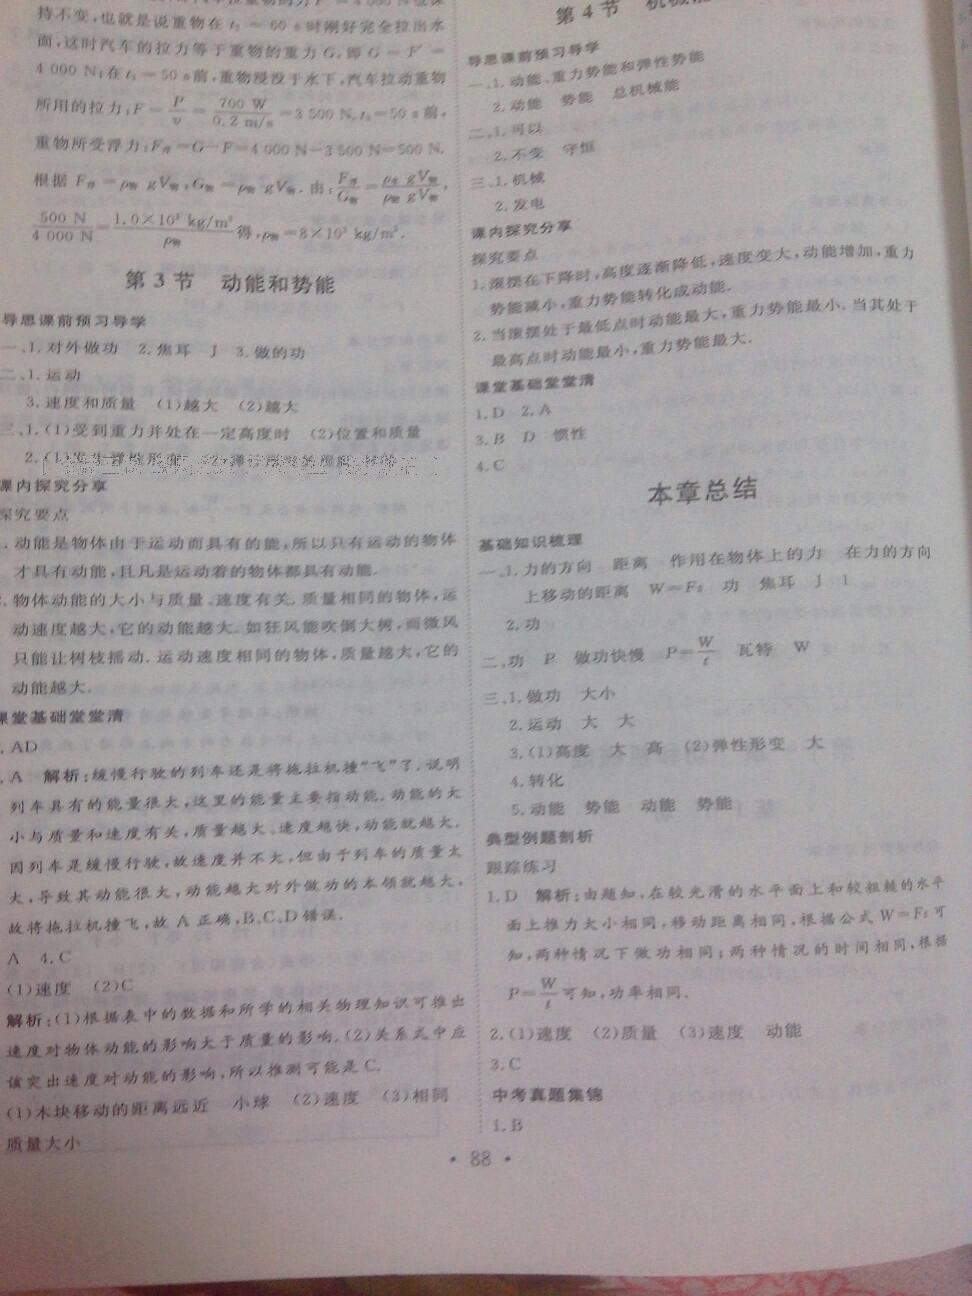 持不变,也就是说重物在 t₃=60 s 时刚好完全拉出水
面,这时汽车的拉力等于重物的重力 G,即 G=F=
4 000 N;在 t₁=50 s 前,重物浸没于水下,汽车拉动重物
所用的拉力:F=P/v=700 W/0.2 m/s=3 500 N, t₁=50 s 前,
重物所受浮力:F浮=G-F=4 000 N-3 500 N=500 N.
根据 F浮=ρ gV物,G物=ρ物 gV物. 由:F浮/G物=ρ水 gV物/ρ物 gV物,
500 N/4 000 N=1.0×10³ kg/m³/ρ物 得,ρ物=8×10³ kg/m³.
第 3 节 动能和势能
导思课前预习导学
一、1. 对外做功 2. 焦耳 J 3. 做的功
二、1. 运动
3. 速度和质量 (1)越大 (2)越大
三、1. (1)受到重力并处在一定高度时 (2)位置和质量
2. (1)发生弹性形变
课内探究分享
探究要点
. 动能是物体由于运动而具有的能,所以只有运动的物体
才具有动能,且凡是运动着的物体都具有动能.
. 物体动能的大小与质量、速度有关. 质量相同的物体,运
动速度越大,它的动能越大. 如狂风能吹倒大树,而微风
只能让树枝摇动. 运动速度相同的物体,质量越大,它的
动能越大.
课堂基础堂堂清
. AD
. A 解析:缓慢行驶的列车还是将拖拉机撞“飞”了. 说明
列车具有的能量很大,这里的能量主要指动能. 动能的大
小与质量和速度有关,质量越大、速度越快,动能就越大.
因列车是缓慢行驶,故速度并不大,但由于列车的质量太
大,导致其动能很大,动能越大对外做功的本领就越大,
故将拖拉机撞飞,故 A 正确,B、C、D 错误.
A 4. C
(1)速度 (2)C
解析:(1)根据表中的数据和所学的相关物理知识可推出
速度对物体动能的影响大于质量的影响. (2)关系式中应
该突出速度对动能的影响,所以推测可能是 C.
(1)木块移动的距离远近 小球 (2)速度 (3)相同
质量大小
第 4 节 机械能
导思课前预习导学
一、1. 动能、重力势能和弹性势能
2. 动能 势能 总机械能
二、1. 可以
2. 不变 守恒
三、1. 机械
2. 发电
课内探究分享
探究要点
1. 滚摆在下降时,高度逐渐降低,速度变大,动能增加,重力
势能减小,重力势能转化成动能.
2. 当滚摆处于最低点时动能最大,重力势能最小. 当其处于
最高点时动能最小,重力势能最大.
课堂基础堂堂清
1. D 2. A
3. B D 惯性
4. C
本章总结
基础知识梳理
一、1. 力的方向 距离 作用在物体上的力 在力的方向
上移动的距离 W=Fs 功 焦耳 J 1
2. 功
二、功 P 做功快慢 P=W/t 瓦特 W
三、1. 做功 大小
2. 运动 大 大
3. (1)高度 大 高 (2)弹性形变 大
4. 转化
5. 动能 势能 动能 势能
典型例题剖析
跟踪练习
1. D 解析:由题知,在较光滑的水平面上和较粗糙的水平
面上推力大小相同,移动距离相同,根据公式 W=Fs 可
知,两种情况下做功相同;两种情况的时间相同,根据
P=W/t 可知,功率相同.
2. (1)速度 (2)质量 (3)速度 动能
3. C
中考真题集锦
1. B
• 88 •